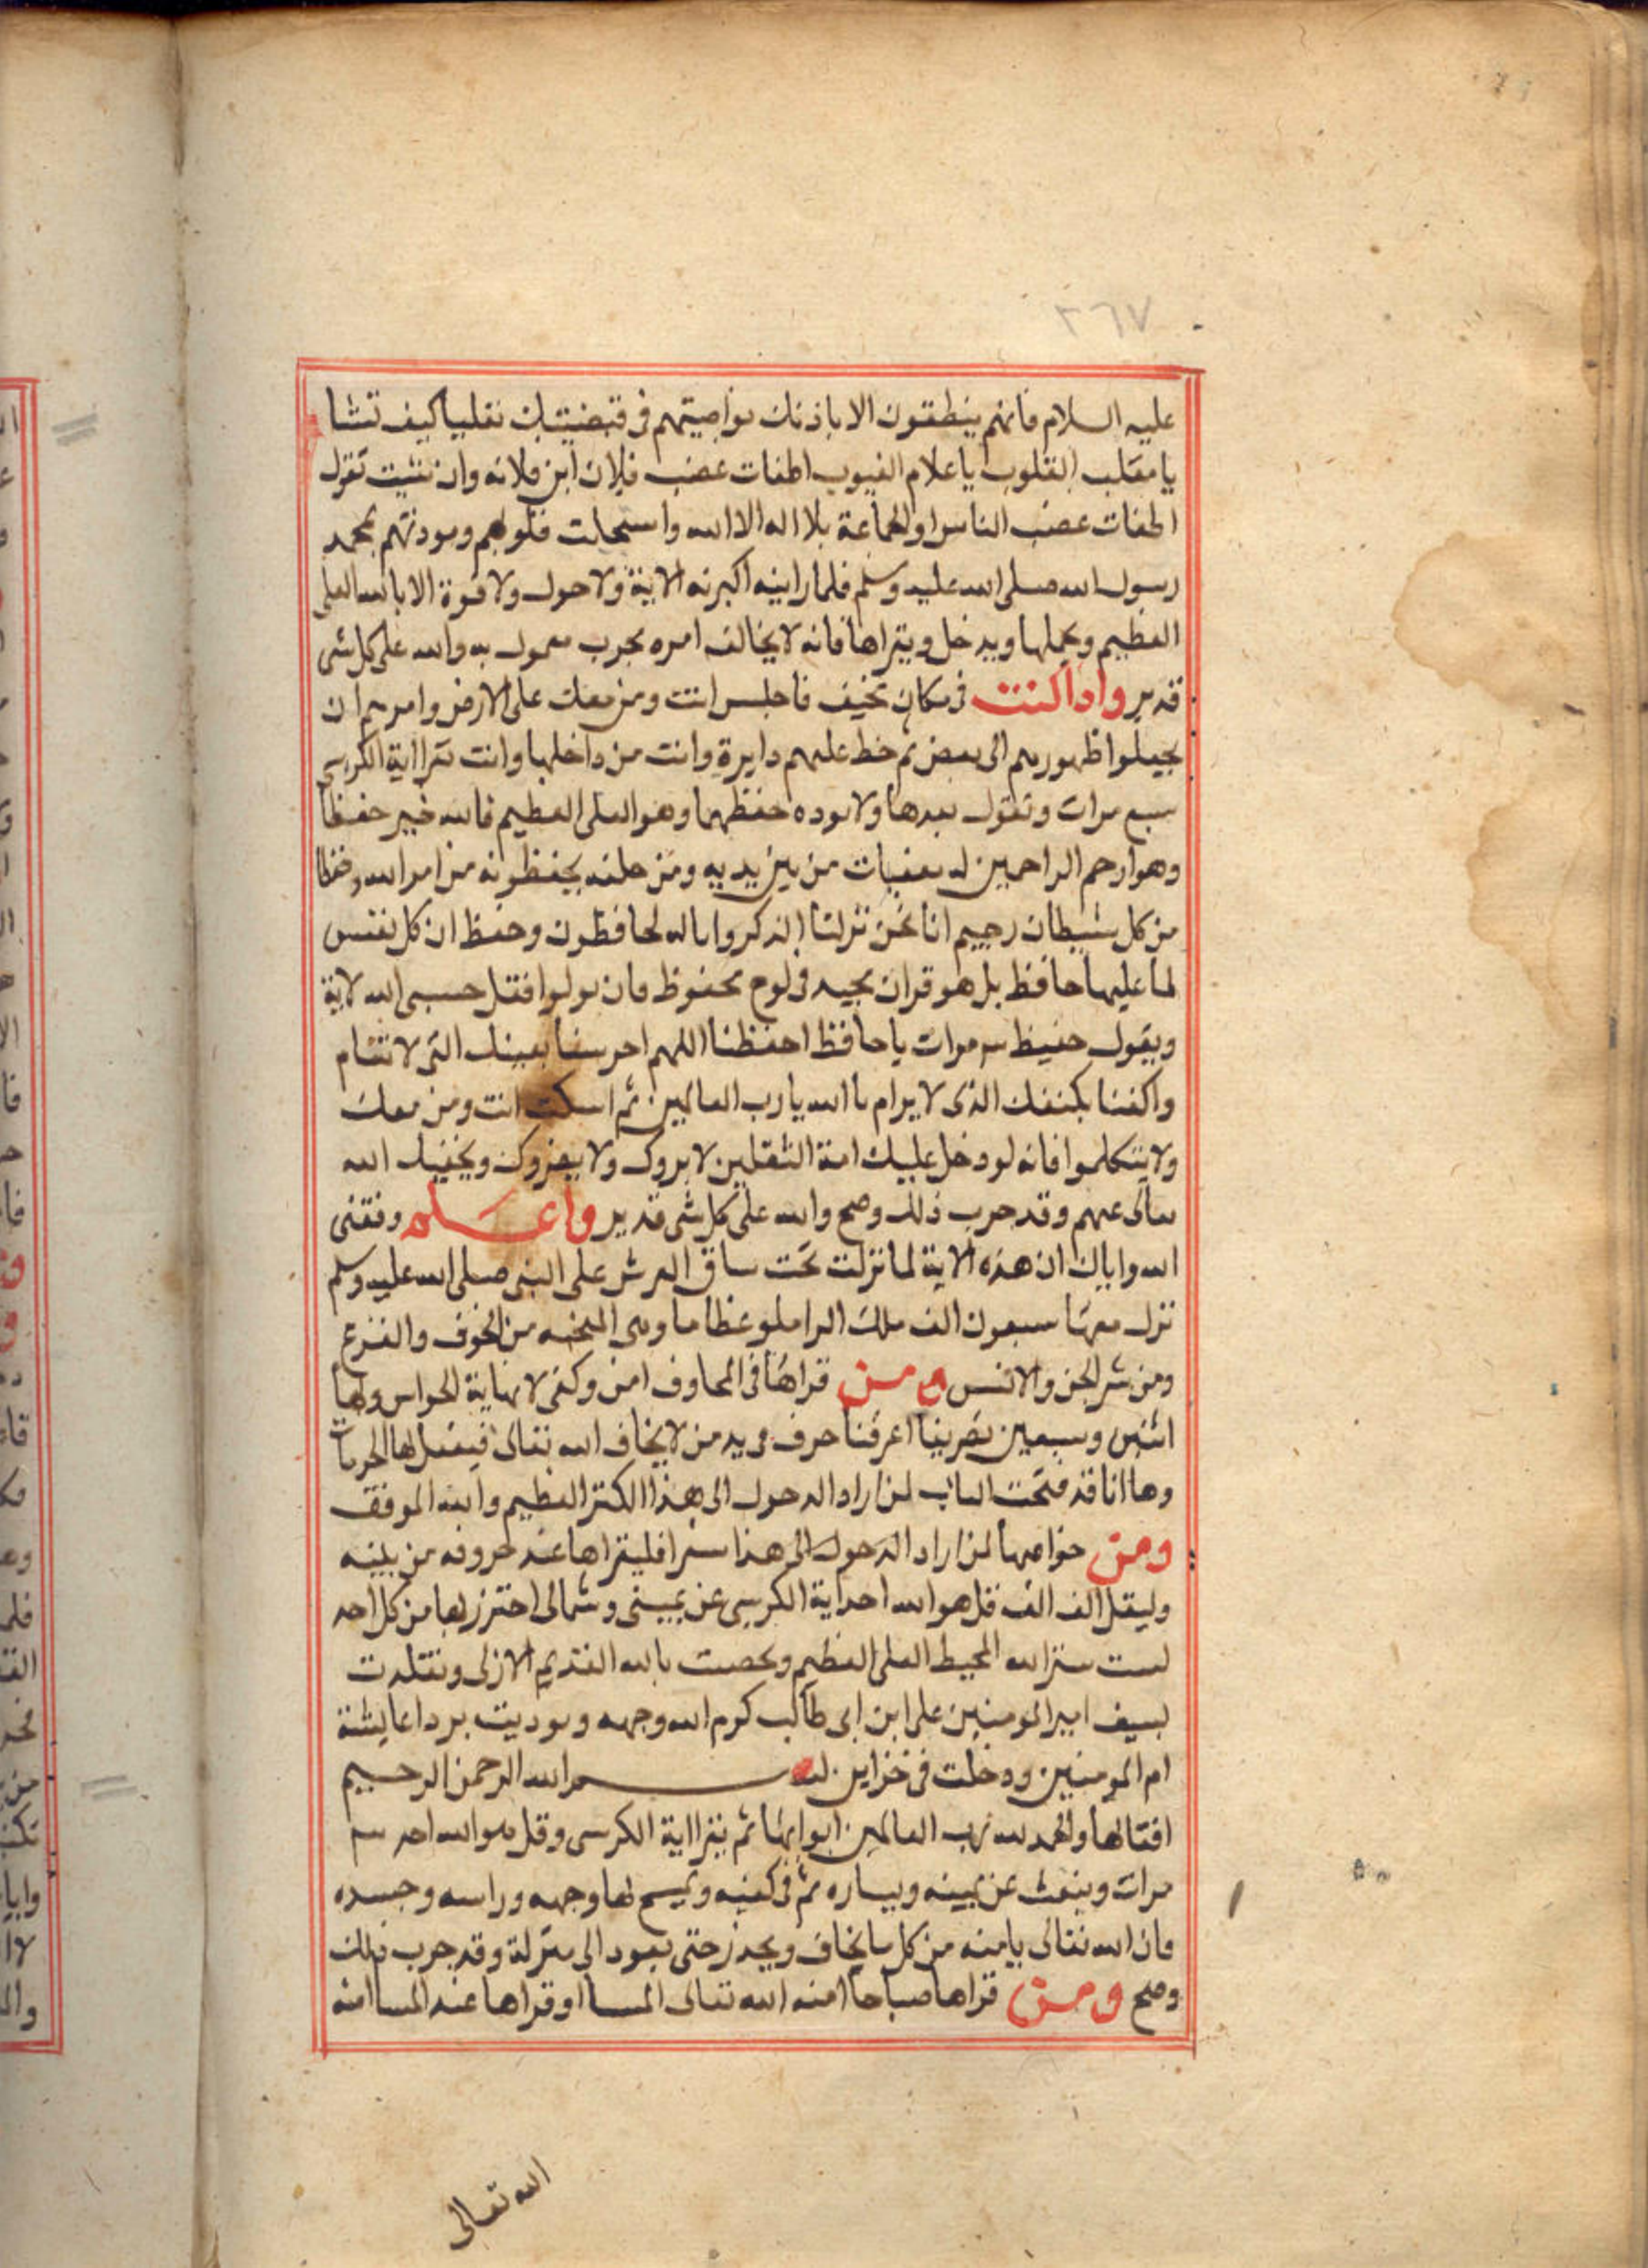 ٣٦٧
عليه السلام فانهم ينطقون الا باذنك نواصيتهم فى قبضيتك تقلبها كيف تشا
يا مقلب القلوب يا علام الغيوب اطفات غضب فلان ابن فلانه وان شيت تقول
اطفات غضب الناس او الجماعة بلا اله الا الله واستجلت قلوبهم ومودتهم بمحمد
رسول الله صلى الله عليه وسلم فلما راينه اكبرنه الاية ولا حول ولا قوة الا بالله العلى
العظيم ويحملها ويدخل ويقراها فانه لا يخالف امره مجرب معمول به والله على كل شى
قدير واذا كنت فى مكان مخيف فاجلس انت ومن معك على الارض وامرهم ان
يجعلوا ظهورهم الى بعض ثم خط عليهم دايرة وانت من داخلها وانت تقرا اية الكرسى
سبع مرات وتقول بعدها ولا يوده حفظهما وهو العلى العظيم فالله خير حفظا
وهو ارحم الراحمين له معقبات من بين يديه ومن خلفه يحفظونه من امر الله وحفظا
من كل شيطان رجيم انا نحن نزلنا الذكر وانا له لحافظون وحفظ ان كل نفس
لما عليها حافظ بل هو قران مجيد فى لوح محفوظ فان تولوا فقل حسبى الله لاية
ويقول حفيظ مرات يا حافظ احفظنا اللهم احرسنا بعينك التى لا تنام
واكفنا بكنفك الذى لا يرام يا الله يا رب العالمين ثم اسكت انت ومن معك
ولا يتكلموا فانه لو دخل عليك امة الثقلين لا يروك ولا يضروك ويخفيك الله
تعالى عنهم وقد جرب ذلك وصح والله على كل شى قدير واعلم وفقنى
الله واياك ان هذه الاية لما نزلت تحت ساق العرش على النبى صلى الله عليه وسلم
نزل معها سبعون الف ملك من الخوف والفزع
ومن شر الجن والانس ومن قراها فى المخاوف امن وكفى لا نهاية الخواص ولها
اثنين وسبعين تصريفا حرف من لا يخاف الله تعالى فيفعل لها الحرمات
وها انا قد فتحت الباب لمن اراد الدخول الى هذا الكنز العظيم والله الموفق
ومن خواصها لمن اراد الدخول الى هذا سفرا فليقراها عند خروفه من بيته
وليقل الف الف قل هو الله احد اية الكرسى عن يمينى وشمالى احترز بها من كل احد
لست ستر الله المحيط العلى العظيم وتحصنت بالله القديم الازلى وتقلدت
بسيف امير المومنين على ابن ابى طالب كرم الله وجهه وترديت بردا عايشة
ام المومنين ودخلت فى خزاين بسم الله الرحمن الرحيم
اقفالها والحمد لله رب العالمين ابوابها ثم يقرا اية الكرسى وقل هو الله احد
مرات وينفث عن يمينه ويساره ثم فى كفيه ويمسح بها وجهه وراسه وجسده
فان الله تعالى يامنه من كل ما يخاف ويحذر حتى يعود الى منزلة وقد جرب ذلك
وصح ومن قراها صباحا امنه الله تعالى المسا او قراها عند المسا امنه
الله تعالى